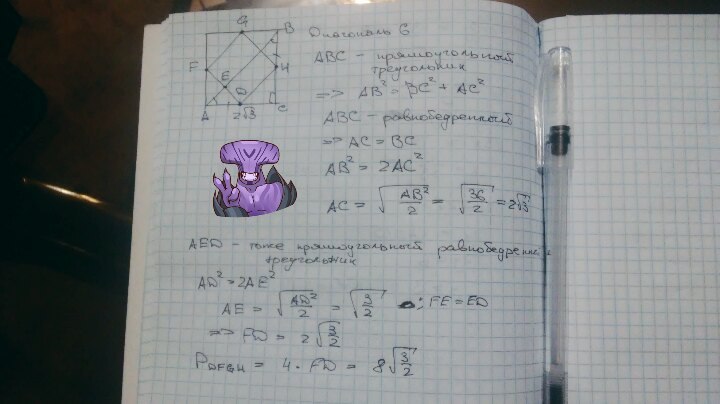 G
B
F
E
H
D
A
2√3
C
Диагональ 6
ABC - прямоугольный
треугольник
=> AB² = BC² + AC²
ABC - равнобедренный
=> AC = BC
AB² = 2AC²
AC = √(AB²/2) = √(36/2) = 2√3
AED - тоже прямоугольный равнобедренный
треугольник
AD² = 2AE²
AE = √(AD²/2) = √(3/2) ; FE = ED
=> FD = 2√(3/2)
PDFGH = 4 · FD = 8√(3/2)